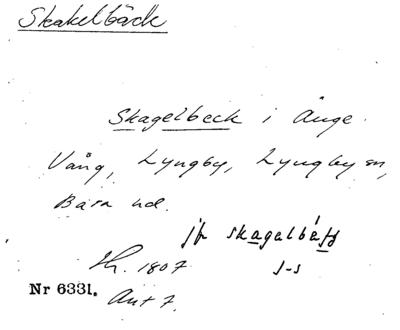 Skakelbäck
Skagelbeck i Änge
Vång, Lyngby, Lyngby sn,
Bara hd.
jfr skagelbäck
s-s
Sk. 1807
Nr 6331.
Ant 7.